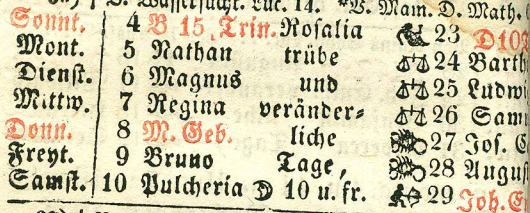 B. Wassersucht. Luc. 14. *V. Mam. D. Math.
Sonnt. 4 B 15. Trin. Rosalia 23 D103
Mont. 5 Nathan trübe 24 Barth
Dienst. 6 Magnus und 25 Ludwi
Mittw. 7 Regina veränder- 26 Sam
Donn. 8 M. Geb. liche 27 Jos. C
Freyt. 9 Bruno Tage, 28 Augus
Samst. 10 Pulcheria ☽ 10 u. fr. 29 Joh. E